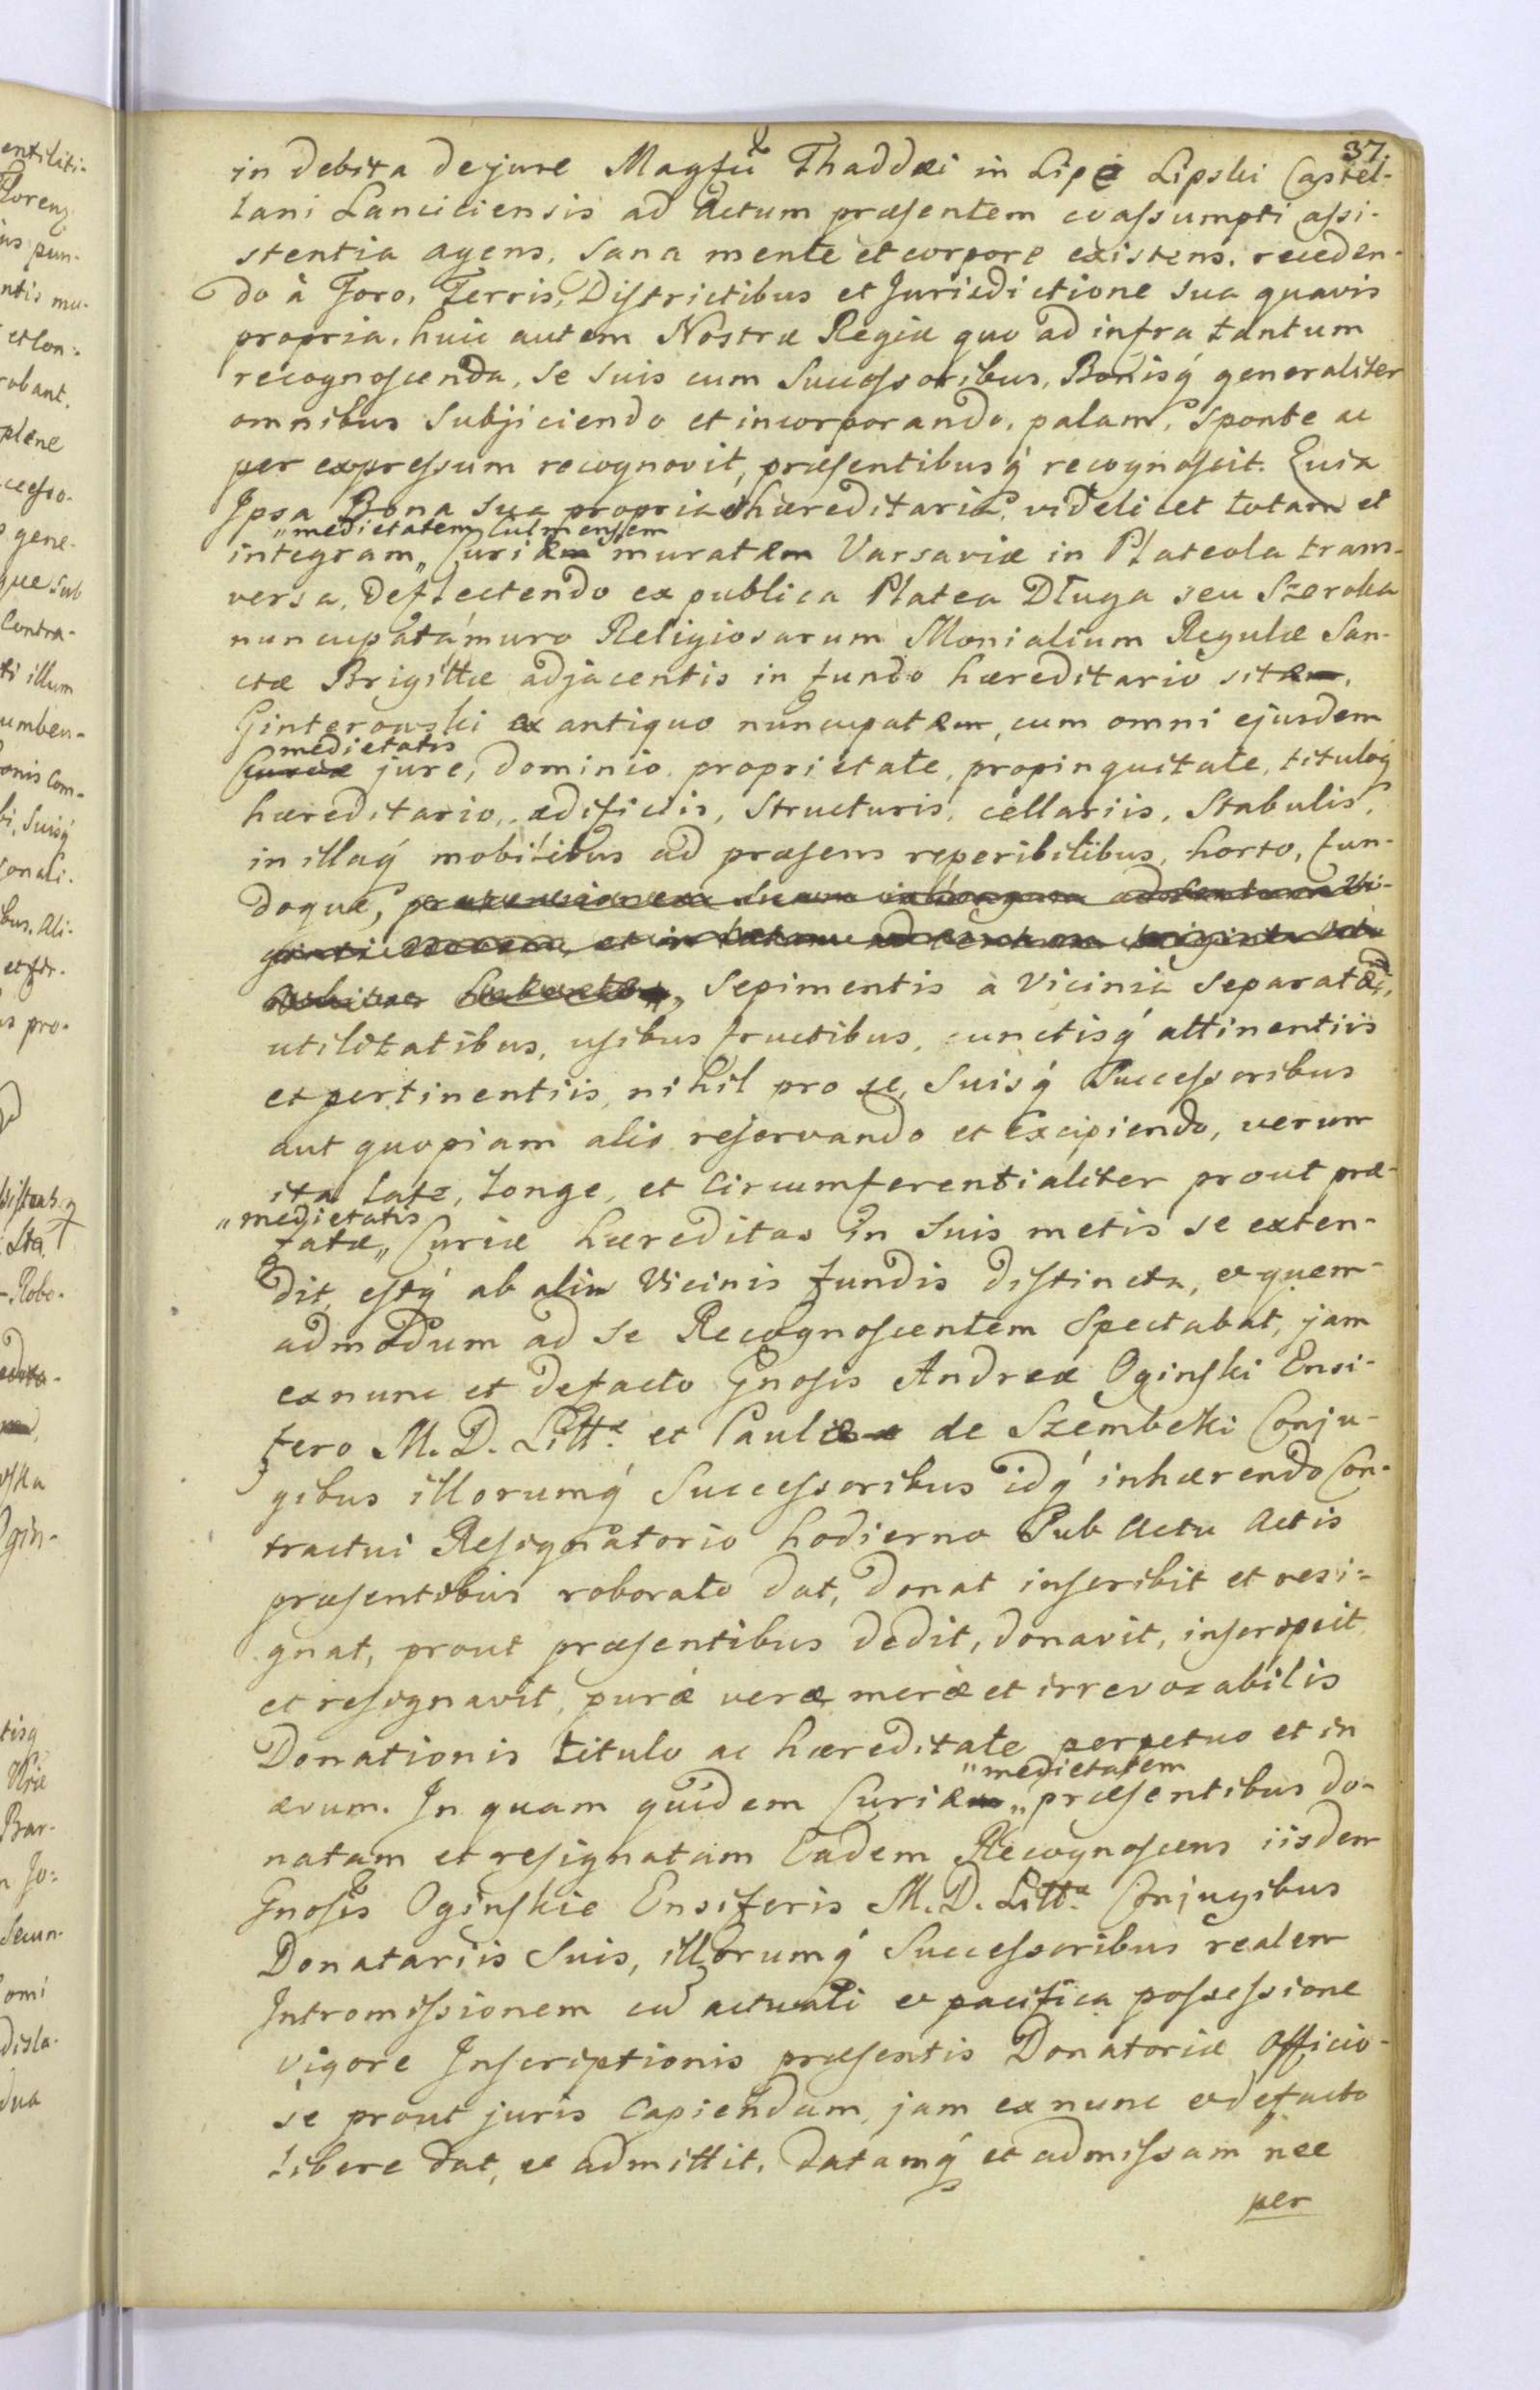 37.
in debita de jure Magfci Thaddæi in Lipe Lipski Castel-
lani Lanciciensis ad Actum præsentem coassumpti assi-
stentia agens, sana mente et corpore existens, receden-
do à Foro, Terris, Districtibus et Jurisdictione sua quavis
propria, huic autem Nostræ Regiæ quo ad infra tantum
recognoscenda, se suis cum Successoribus, Bonisq́ generaliter
omnibus subjiciendo et incorporando, palam, sponte ac
per expressum recognovit, præsentibusq́ recognoscit. Quia
Ipsa Bona sua propria hæreditaria, videlicet totam et
„medietatem Culmensem
integram„ Curiæ muratæ Varsaviæ in Plateola trans-
versa, deflectendo ex publica Platea Długa seu Szeroka
nuncupata, muro Religiosarum Monialium Regulæ San-
ctæ Brigittæ adjacentis in fundo hæreditario sitæ,
Ginterowski ex antiquo nuncupatæ, cum omni ejusdem
medietatis
Curiæ jure, dominio, proprietate, propinquitate, tituloq́
hæreditario, ædificiis, structuris, cellariis, stabulis,
in illaq́ mobilibus ad præsens reperibilibus, horto, fun-
doque,
sepimentis à vicinia separatæ,
utilitatibus, usibus fructibus, cunctisq́ attinentiis
et pertinentiis, nihil pro se, suisq́ Successoribus
aut quopiam alio reservando et excipiendo, verum
ita late, longe, et circumferentialiter prout præ-
„medietatis
fatæ„ Curiæ hæreditas in suis metis se exten-
dit, estq́ ab aliis vicinis fundis distincta, et quem-
admodum ad se Recognoscentem spectabat, jam
ex nunc et de facto Gnosis Andreæ Oginski Ensi-
fero M. D. Littæ et Paulæ de Szembeki Conju-
gibus illorumq́ Successoribus idq́ inhærendo Con-
tractui Resignatorio hodierno sub Actu Actis
præsentibus roborato dat, donat inscribit et resi-
gnat, prout præsentibus dedit, donavit, inscripsit,
et resignavit, puræ veræ meræ et irrevocabilis
Donationis titulo ac hæreditate perpetuo et in
ævum. In quam quidem Curiæ „medietatem„ præsentibus do-
natam et resignatam Eadem Recognoscens iisdem
Gnosis Oginskie Ensiferis M. D. Littæ Conjugibus
Donatariis suis, illorumq́ Successoribus realem
Intromissionem cum actuali et pacifica possessione
vigore Inscriptionis præsentis Donatoriæ officio-
se prout juris capiendam, jam ex nunc et de facto
libere dat, et admittit, datamq́ et admissam nec
per